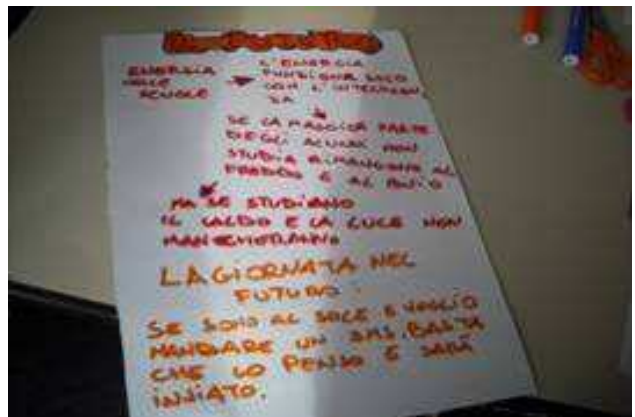 ENERGIA
NELLE
SCUOLE
L'ENERGIA
FUNZIONA SOLO
CON L'INTELLIGEN
ZA
SE LA MAGGIOR PARTE
DEGLI ALUNNI NON
STUDIA RIMANGONO AL
FREDDO E AL BUIO
MA SE STUDIANO
IL CALDO E LA LUCE NON
MANCHERANNO
LA GIORNATA NEL
FUTURO
SE SONO AL SOLE E VOGLIO
MANDARE UN SMS, BASTA
CHE LO PENSO E SARÀ
INVIATO.